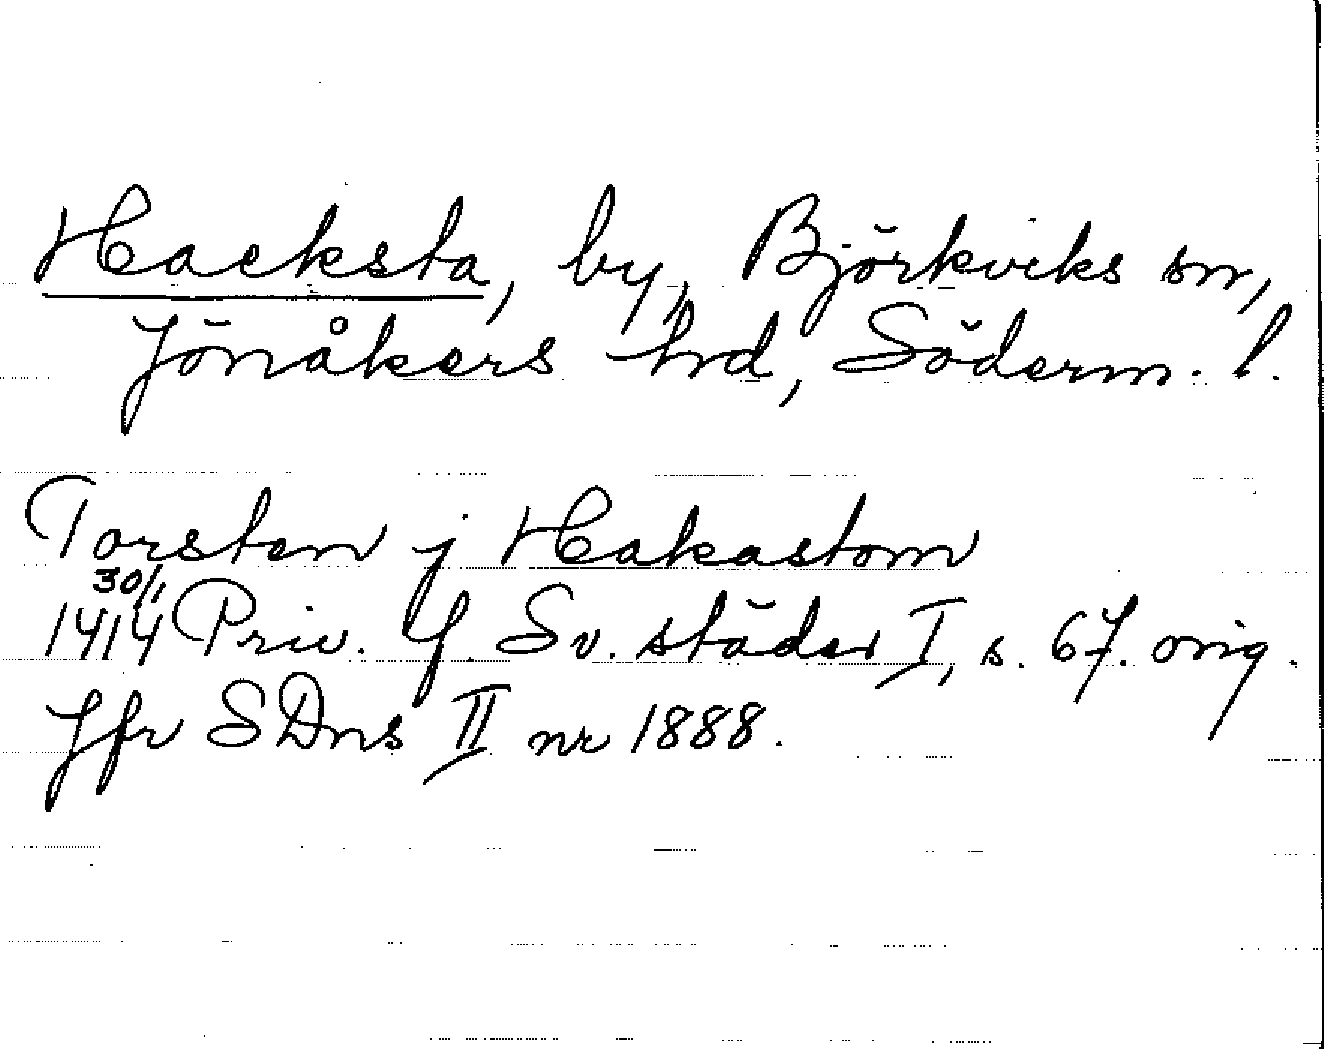 Hacksta, by, Björkviks sn,
Jönåkers hrd, Söderm. l.
Torsten j Hakastom
30/1
1414 Priv. f. Sv. städer I, s. 67. orig.
Jfr SDns II nr 1888.